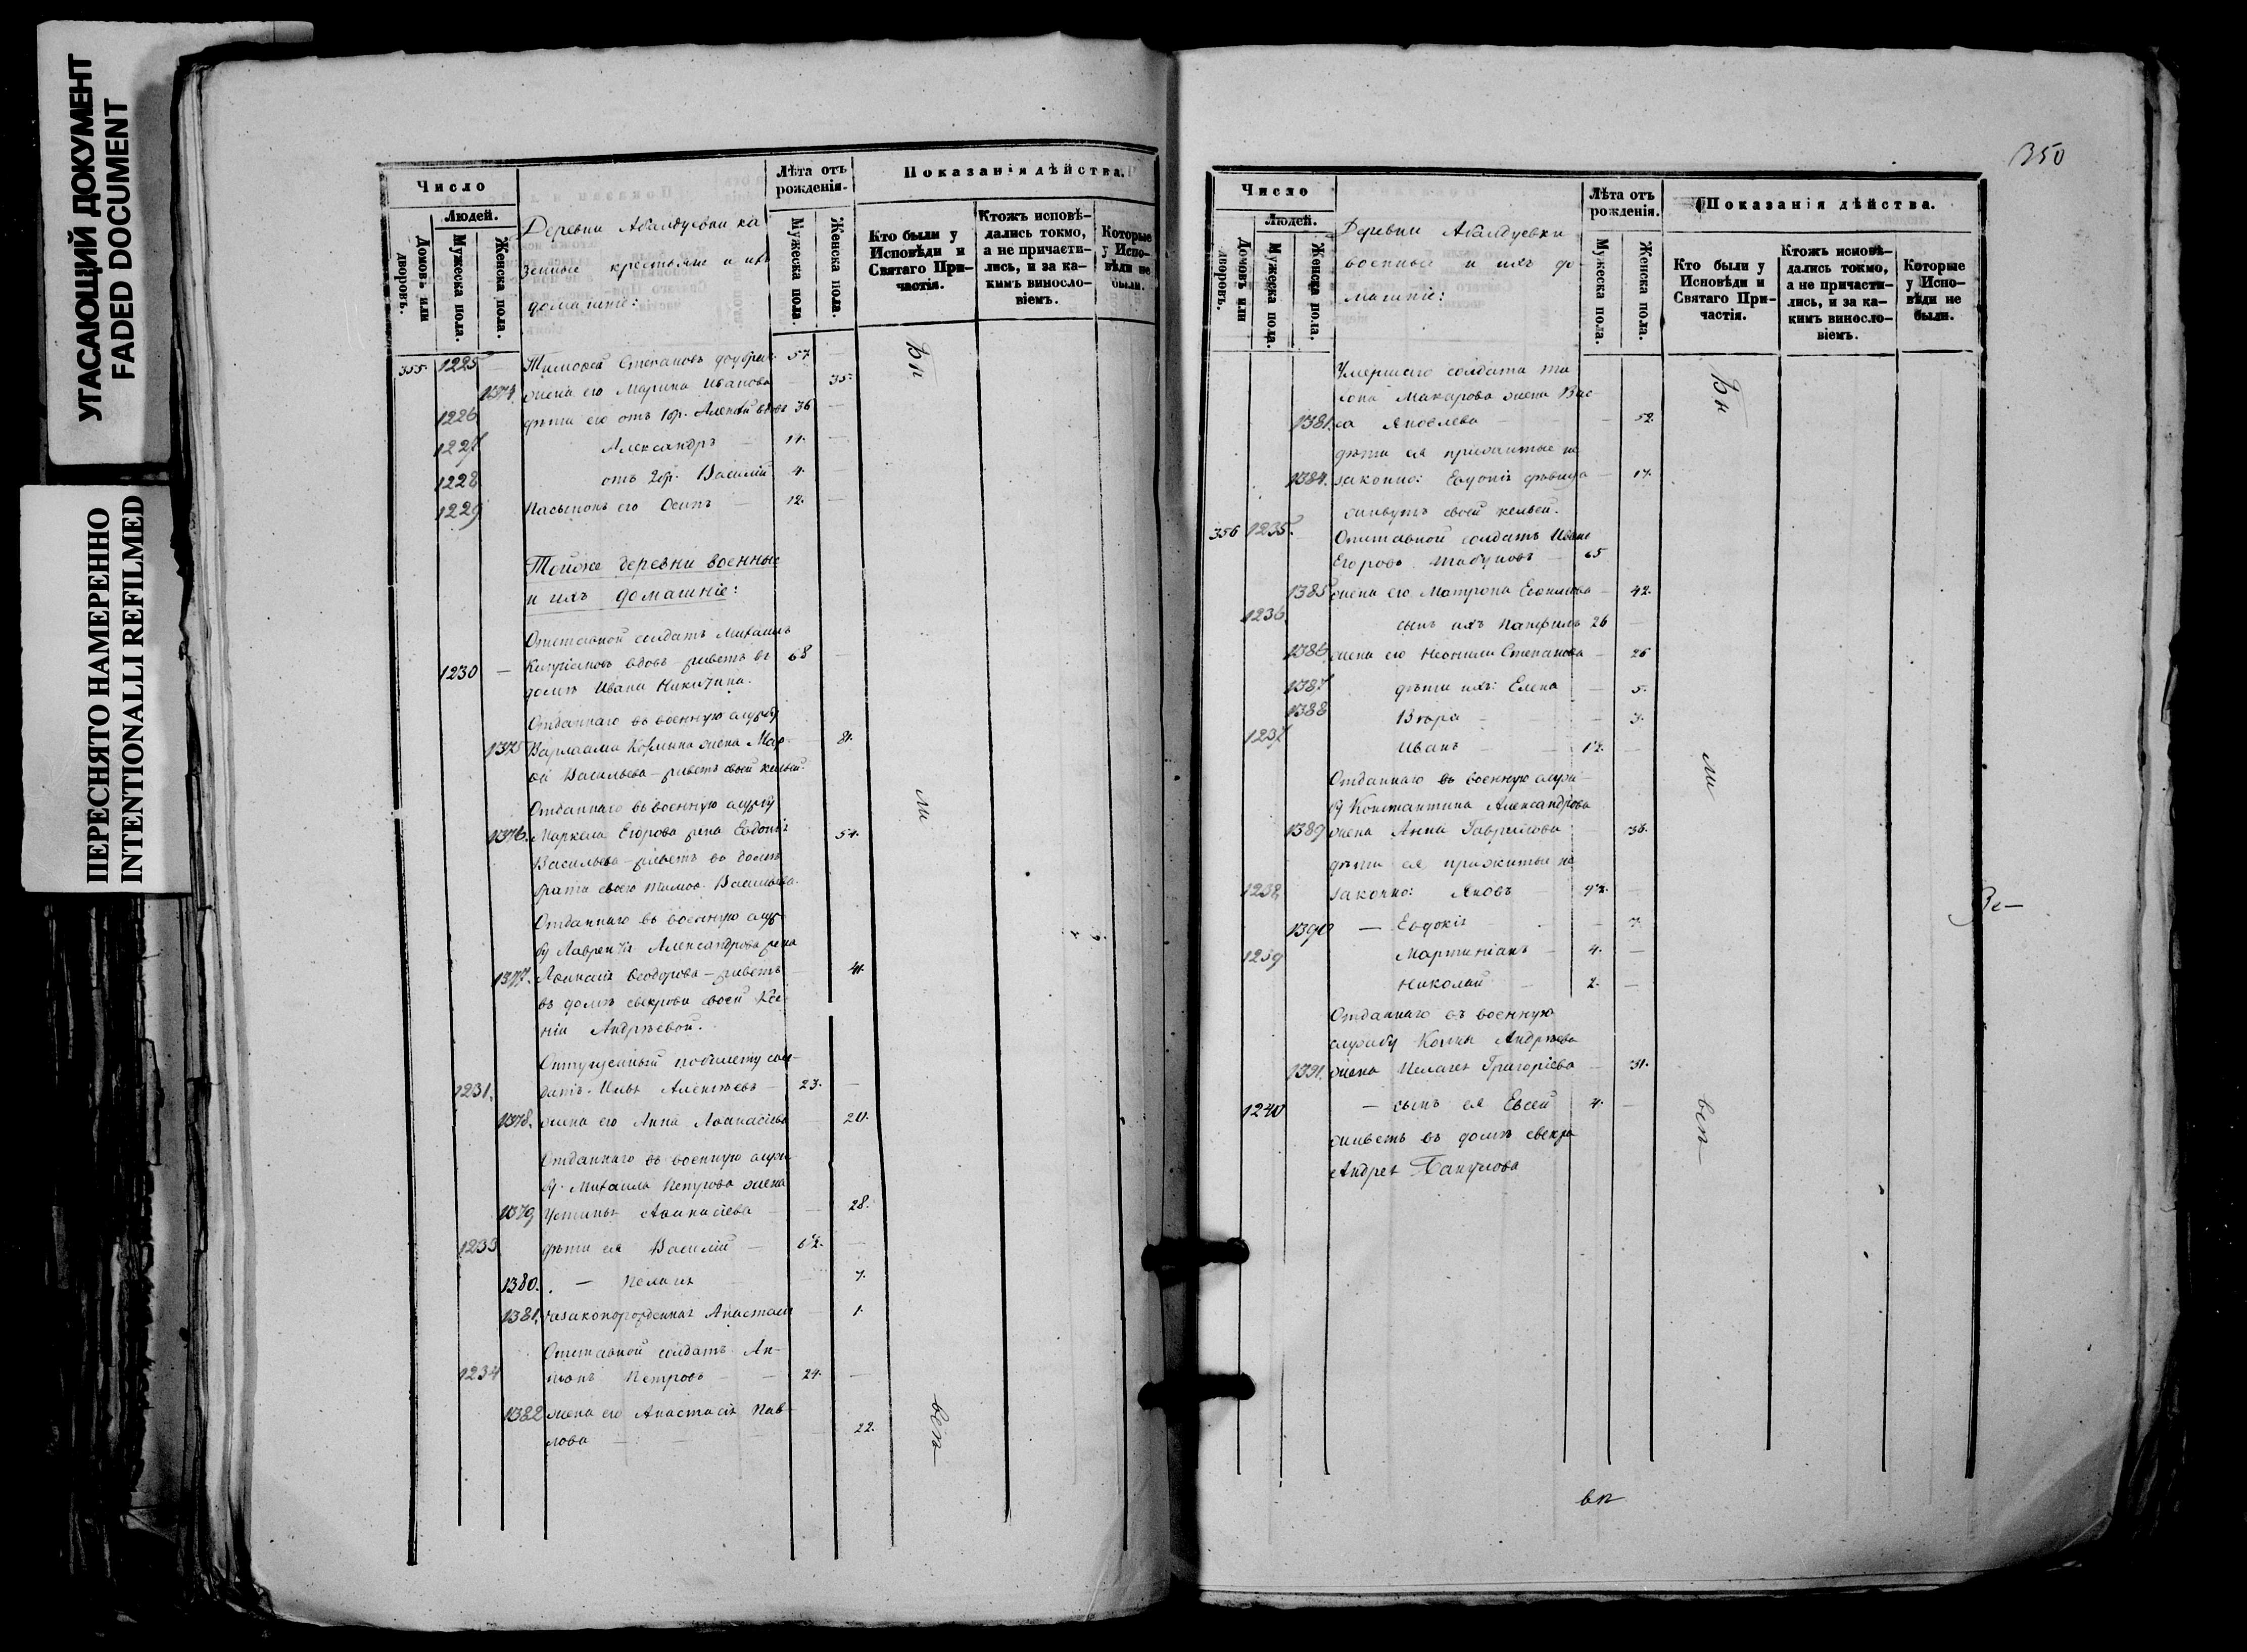 УГАСАЮЩИЙ ДОКУМЕНТ
FADED DOCUMENT
ПЕРЕСНЯТО НАМЕРЕННО
INTENTIONALLI REFILMED
Число
Людей.
Домовъ или дворовъ.
Мужеска пола.
Женска пола.
Деревни Абалдуевки ка
зенные крестьяне и ихъ
домашніе:
Лѣта отъ рожденія.
Мужеска пола.
Женска пола.
Показанія дѣйства.
Кто были у Исповѣди и Святаго При-
частія.
Ктожъ исповѣ-
дались токмо,
а не причасти-
лись, и за ка-
кимъ виносло-
віемъ.
Которые
у Испо-
вѣди не
были.
355. 1225 Тимофей Степановъ 57
1374 жена его Марина Иванова 35
1226 дѣти его отъ 1 бр. Алексѣй вдовъ 36
1227 Александръ 11.
1228 отъ 2 бр. Василій 4.
1229 Пасынокъ его Осипъ 12.
Тойже деревни военные
и ихъ домашніе:
Отставной солдатъ Михаилъ
1230 Кипріановъ вдовъ живетъ въ 68
домѣ Ивана Никитина.
Отданнаго въ военную службу
1375 Варлаама жена Мар-
Васильева – живетъ своей кельей.
Отданнаго въ военную службу
1376. Маркела Егорова жена Евдокія 54.
Васильева – живетъ въ домѣ
брата своего Тимоф. Васильева.
Отданнаго въ военную служ-
бу Лаврентія Александрова жена
1377. Афанасія Ѳеодорова – живетъ 41.
въ домѣ свекрови своей Ксе-
ніи Андрѣевой.
Отпущенный по билету сол-
1231. датъ Илья Алексѣевъ 23.
1378. жена его Анна Афанасіева 20.
Отданнаго въ военную служ-
бу Михаила Петрова жена
1379 Устинья Афанасіева 28.
1233 дѣти ея Василій
1380. – Пелагея 7.
1381. незаконорожденная Анастасія 1.
Отставной солдатъ Ан-
1234 тонъ Петровъ 24.
1382 жена его Анастасія Пав-
лова 22.
Бы
ли
всѣ
350
Число
Людей.
Домовъ или дворовъ.
Мужеска пола.
Женска пола.
Деревни Абалдуевки
военные и ихъ до-
машніе:
Лѣта отъ рожденія.
Мужеска пола.
Женска пола.
Показанія дѣйства.
Кто были у Исповѣди и Святаго При-
частія.
Ктожъ исповѣ-
дались токмо,
а не причасти-
лись, и за ка-
кимъ виносло-
віемъ.
Которые
у Испо-
вѣди не
были.
Умершаго солдата
Макарова жена Вас-
са Яковлева 52.
дѣти ея прижитые не
1384. законно: Евдокія дѣвица 17.
живутъ своей кельей.
356 1235. Отставной солдатъ Иванъ
Егоровъ Табуновъ 65
1385 жена его Матрона Евѳимова 42.
1236 сынъ ихъ Панфилъ 26
1386 жена его Неонила Степанова 26
1387 дѣти ихъ: Елена 5.
1388 Вѣра 3.
1237 Иванъ
Отданнаго въ военную служ-
бу Константина Александрова
1389 жена Анна Гаврилова
дѣти ея прижитые не
1238 законно: Яковъ
1390 – Евдокія 7.
1239 Мартиніанъ 4.
Николай 2.
Отданнаго въ военную
службу Козмы Андрѣева
1391. жена Пелагея Григоріева 31.
1240 – сынъ ея Евсей 4.
живетъ въ домѣ свекра
Андрея
Бы
ли
всѣ